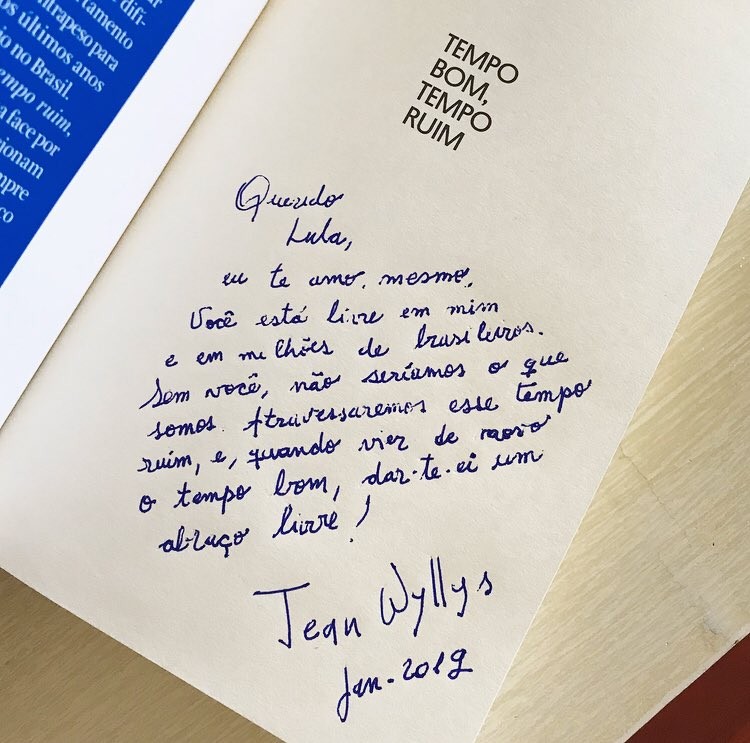 difi-
rtamento
ntrapeso para
os últimos anos
io no Brasil.
empo ruim,
a face por
cionam
mpre
co
TEMPO
BOM,
TEMPO
RUIM
Querido
Lula,
eu te amo, mesmo.
Você está livre em mim
e em milhões de brasileiros.
Sem você, não seríamos o que
somos. Atravessaremos esse tempo
ruim, e, quando vier de novo
o tempo bom, dar-te-ei um
abraço livre!
Jean Wyllys
Jan-2019